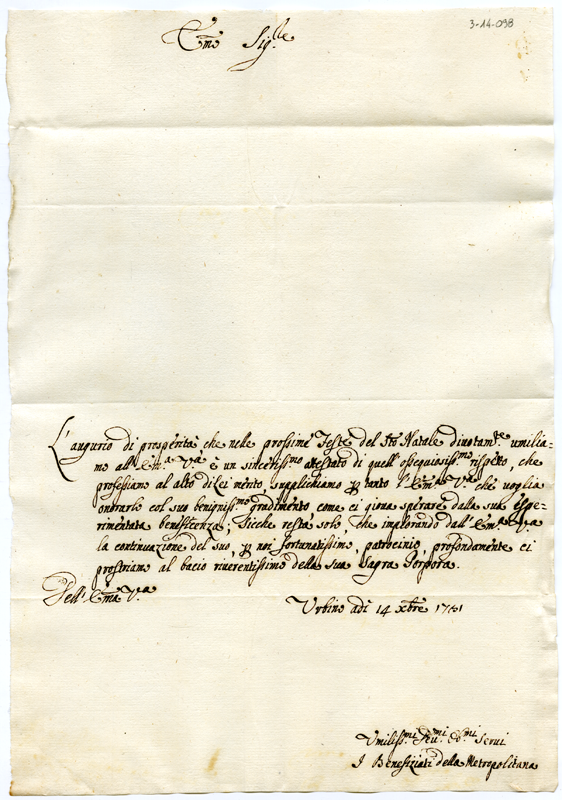 3-14-098
Em̃o Sig.re
L'augurio di prosperità che nelle prossime Feste del Sto Natale divotam.te umilia-
mo all' Em̃a V.a è un sincerissmo attestato di quell' ossequiosiss.mo rispetto, che
professiamo al alto di Lei merito, supplichiamo p tanto l' Em̃a V.a che voglia
onorarlo col suo benignis.mo gradimento come ci giova sperare dalla sua espe-
rimentata beneficenza; sicche resta solo che implorando dall' Em̃a V.a
la continuazione del suo, p noi fortunatissimo, patrocinio, profondamente ci
prostriamo al bacio riverentissimo della sua Sagra Porpora.
Dell' Em̃a V.a
Urbino adi 14 xbre 1761
Umiliss.mi Devmi Obmi Servi
I Benefiziati della Metropolitana